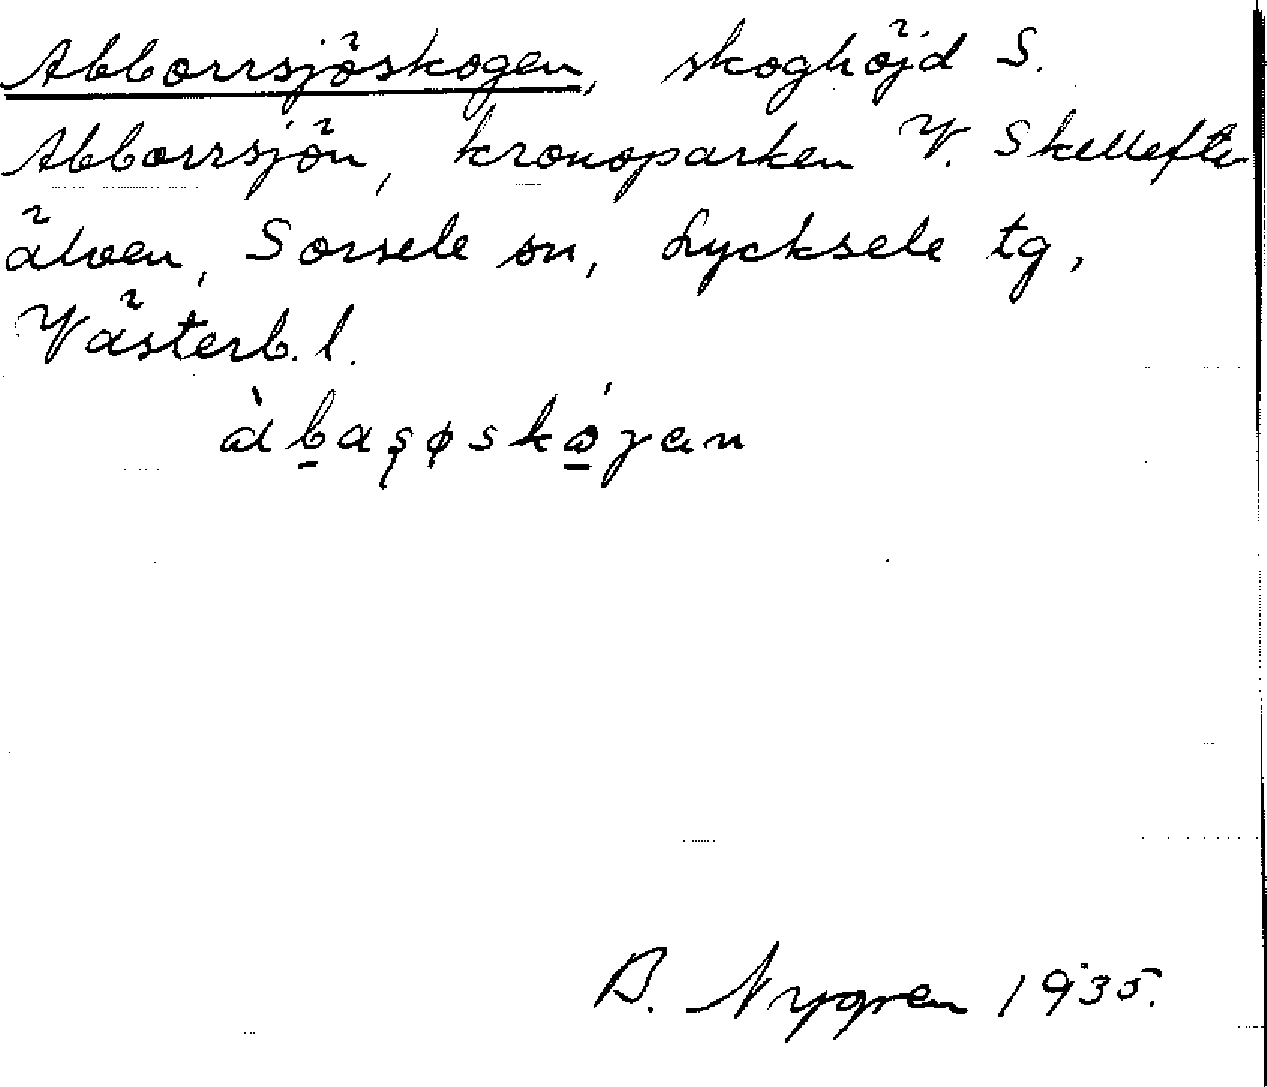 Abborrsjöskogen, skoghöjd S.
Abborrsjön, kronoparken V. Skellefte
älven, Sorsele sn, Lycksele tg,
Västerb. l.
àb̲aʂøskó̲gan
B. Nygren 1935.